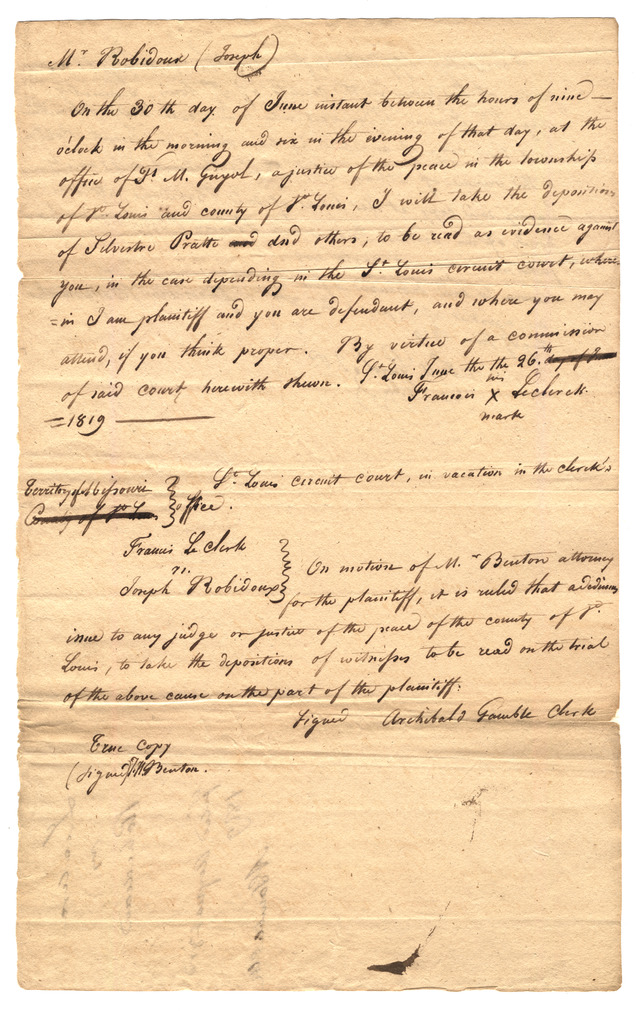 Mr Robidoux (Joseph)
On the 30th day of June instant between the hours of nine
o'clock in the morning and six in the evening of that day, at the
office of Fs M. Guyol, a justice of the peace in the township
of St. Louis and county of St. Louis, I will take the depositions
of Silvestre Pratte and others, to be read as evidence against
you, in the case depending in the St Louis circuit court, where
=in I am plaintiff and you are defendant, and where you may
attend, if you think proper. By virtue of a commission
of said court herewith shewn. St Louis June the the 26th day of
=1819
Francois X Leclerck
his
mark
Territory of Missouri
County of St Louis
St Louis circuit court, in vacation in the clerk's
office.
Francis Le Clerk
vs.
Joseph Robidoux
On motion of Mr Benton attorney
for the plaintiff, it is ruled that a dedimus
issue to any judge or justice of the peace of the county of St.
Louis, to take the depositions of witnesses to be read on the trial
of the above cause on the part of the plaintiff:
Signed Archibald Gamble Clerk
True Copy
(signed) Benton.